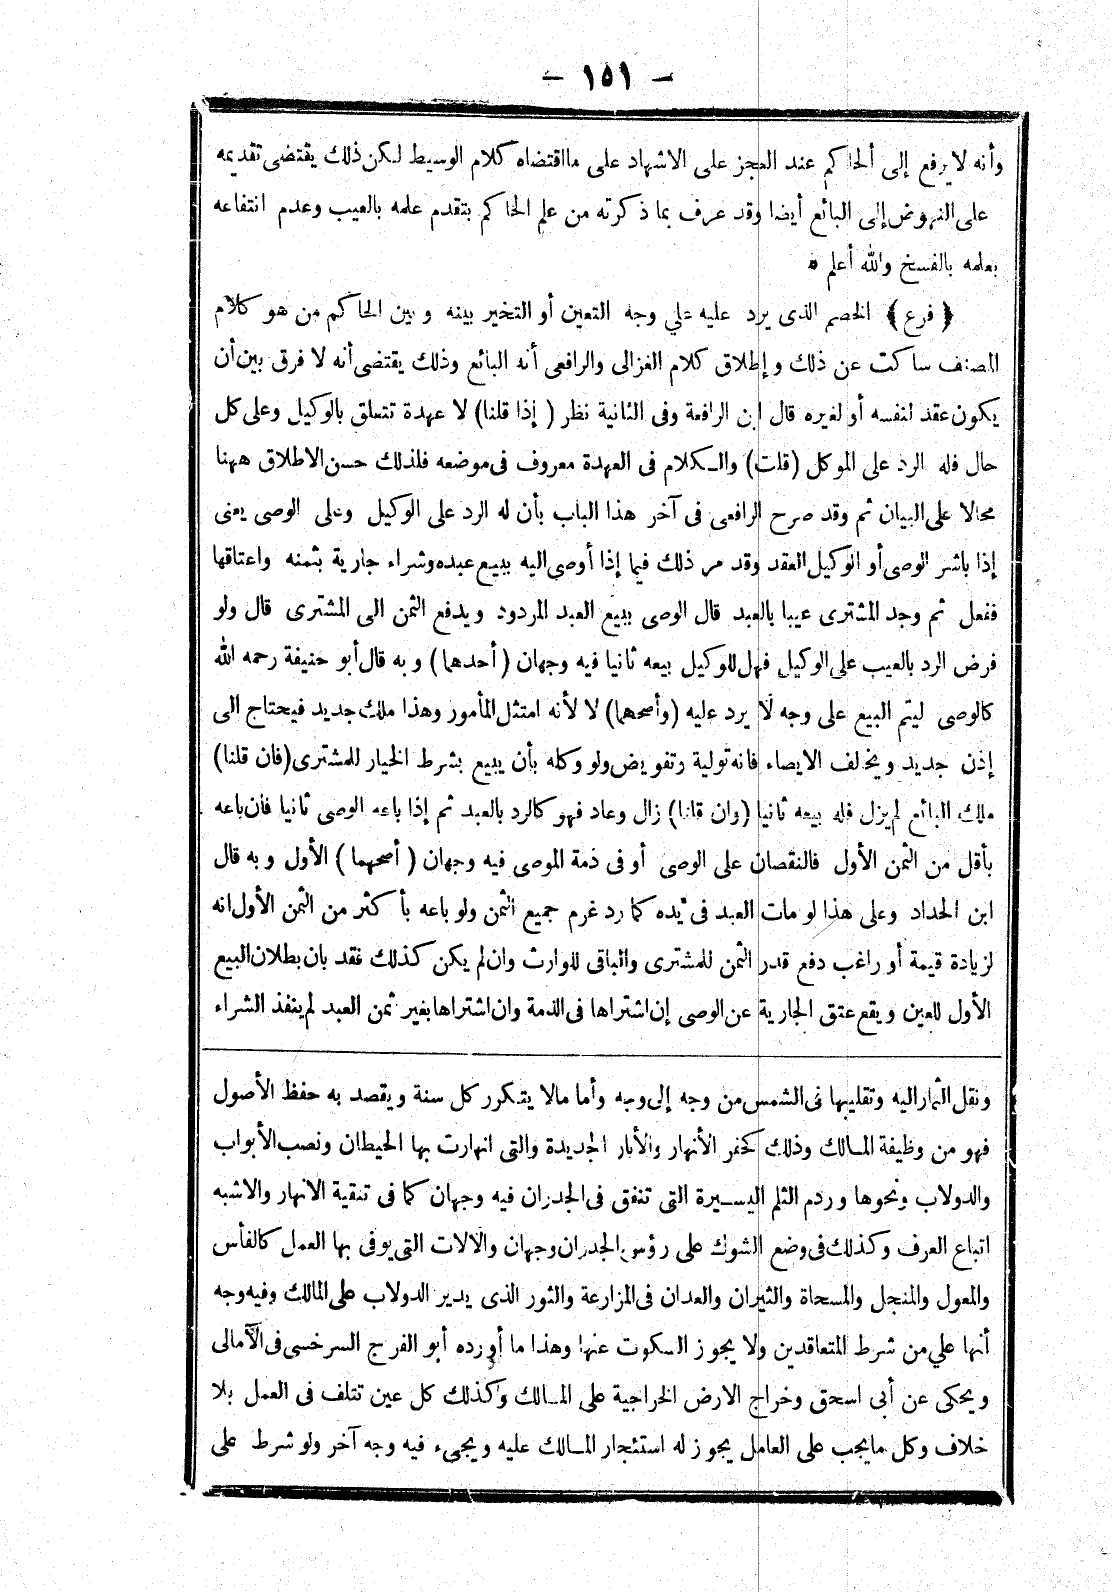 - ١٥١ -
وأنه لا يرفع إلى الحاكم عند العجز على الاشهاد على ما اقتضاه كلام الوسيط لكن ذلك يقتضى تقديمه
على النهوض إلى البائع أيضا وقد عرف بما ذكرته من علم الحاكم بتقدم علمه بالعيب وعدم انتفاعه
بعلمه بالفسخ والله أعلم *
﴿ فرع ﴾ الخصم الذى يرد عليه على وجه التعين أو التخير بينه وبين الحاكم من هو كلام
المصنف ساكت عن ذلك وإطلاق كلام الغزالى والرافعى أنه البائع وذلك يقتضى أنه لا فرق بين أن
يكون عقد لنفسه أو لغيره قال ابن الرافعة وفى الثانية نظر ( إذا قلنا) لا عهدة تتعلق بالوكيل وعلى كل
حال فله الرد على الموكل (قلت) والكلام فى العهدة معروف فى موضعه فلذلك حسن الاطلاق ههنا
محالا على البيان ثم وقد صرح الرافعى فى آخر هذا الباب بأن له الرد على الوكيل وعلى الوصى يعنى
إذا باشر الوصى أو الوكيل العقد وقد مر ذلك فيما إذا أوصى اليه ببيع عبده وشراء جارية بثمنه واعتاقها
ففعل ثم وجد المشترى عيبا بالعبد قال الوصى ببيع العبد المردود ويدفع الثمن الى المشترى قال ولو
فرض الرد بالعيب على الوكيل فهل للوكيل بيعه ثانيا فيه وجهان ( أحدها ) وبه قال أبو حنيفة رحمه الله
كالوصى ليتم البيع على وجه لا يرد عليه (وأصحهما) لا لأنه امتثل المأمور وهذا ملك جديد فيحتاج الى
إذن جديد ويخالف الايصاء فانه تولية وتفويض ولو وكله بأن يبيع بشرط الخيار للمشترى (فان قلنا)
ملك البائع لم يزل فله بيعه ثانيا (وان قلنا) زال وعاد فهو كالرد بالعبد ثم إذا باعه الوصى ثانيا فان باعه
بأقل من الثمن الأول فالنقصان على الوصى أو فى ذمة الموصى فيه وجهان ( أصحهما ) الأول وبه قال
ابن الحداد وعلى هذا لو مات العبد فى يده كما رد غرم جميع الثمن ولو باعه بأكثر من الثمن الأول انه
لزيادة قيمة أو راغب دفع قدر الثمن للمشترى والباقى للوارث وان لم يكن كذلك فقد بان بطلان البيع
الأول للعين ويقع عتق الجارية عن الوصى إن اشتراها فى الذمة وان اشتراها بغير ثمن العبد لم ينفذ الشراء
ونقل الثمار اليه وتقليبها فى الشمس من وجه إلى وجه وأما مالا يتكرر كل سنة ويقصد به حفظ الأصول
فهو من وظيفة المالك وذلك كحفر الأنهار والأبار الجديدة والتى انهارت بها الحيطان ونصب الأبواب
والدولاب ونحوها وردم الثلم اليسيرة التى تتفق فى الجدران فيه وجهان كما فى تنقية الانهار والاشبه
اتباع العرف وكذلك فى وضع الشوك على رؤس الجدران وجهان والالات التى يوفى بها العمل كالفأس
والمعول والمنجل والمسحاة والثيران والعدان فى المزارعة والثور الذى يدير الدولاب على المالك وفيه وجه
أنها على من شرط المتعاقدين ولا يجوز السكوت عنها وهذا ما أورده أبو الفرج السرخسى فى الآمالى
ويحكى عن أبى اسحق وخراج الارض الخراجية على المالك وكذلك كل عين تتلف فى العمل بلا
خلاف وكل ما يجب على العامل يجوز له استئجار المالك عليه ويجىء فيه وجه آخر ولو شرط على